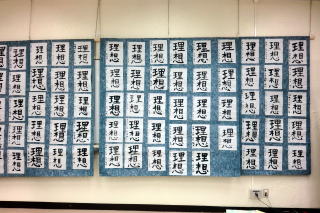 理想 理想 理想 理想 理想 理想 理想 理想 理想 理想 理想 理想 理想
理想 理想 理想 理想 理想 理想 理想 理想 理想 理想 理想 理想 理想
理想 理想 理想 理想 理想 理想 理想 理想 理想 理想 理想 理想 理想
理想 理想 理想 理想 理想 理想 理想 理想 理想 理想 理想 理想 理想
理想 理想 理想 理想 理想 理想 理想 理想 理想 理想 理想 理想